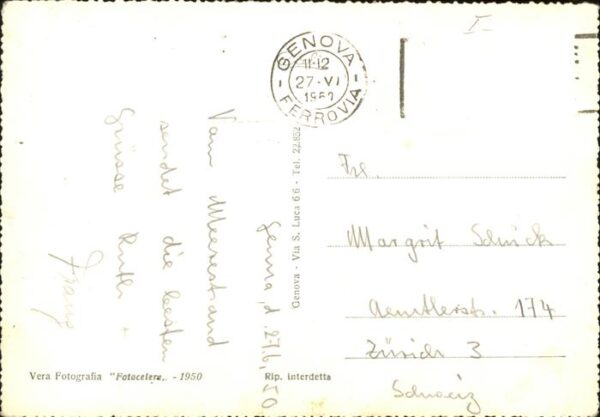 I.
GENOVA
11-12
27·VI
FERROVIA
Genua, d. 27.6.50
Vom Meeresstrand
sendet die besten
Grüsse Ruth +
Franz
Genova - Via S. Luca 6 6 - Tel. 22.852
Frl.
Margrit Schick
Aemtlerstr. 174
Zürich 3
Schweiz
Vera Fotografia "Fotocelere„ - 1950
Rip. interdetta